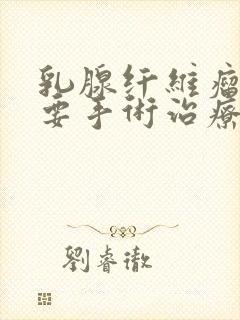 乳腺纤維瘤
要手術治療
劉睿徹